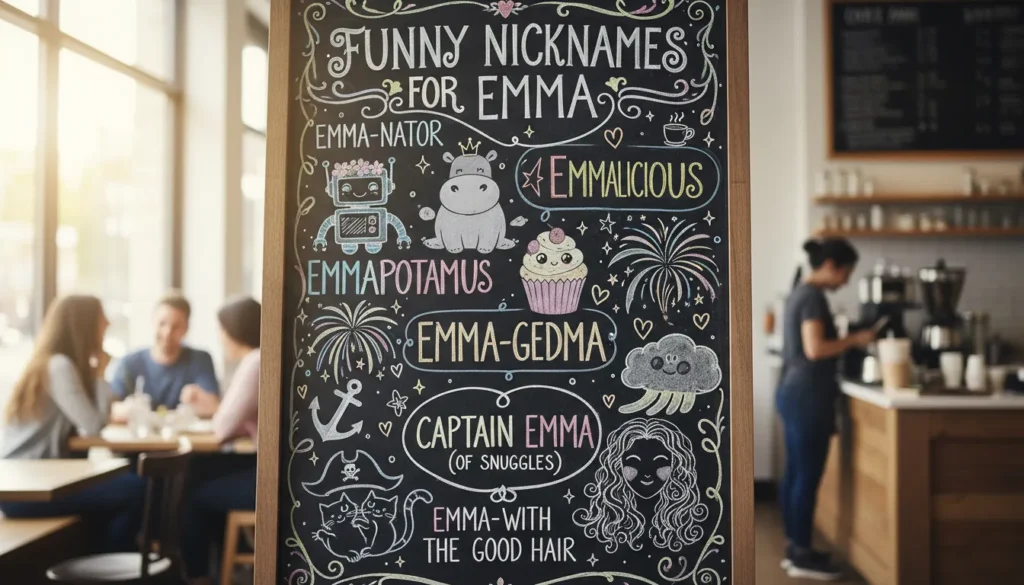 FUNNY NICKNAMES
FOR EMMA
EMMA-NATOR
EMMALICIOUS
EMMAPOTAMUS
EMMA-GEDMA
CAPTAIN EMMA
(OF SNUGGLES)
EMMA-WITH
THE GOOD HAIR